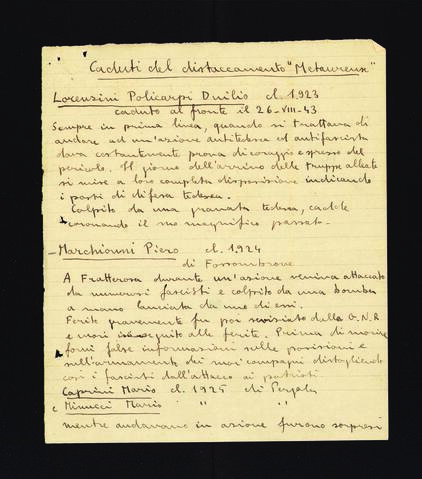 Caduti del distaccamento "Metaurense"
Lorenzini Policarpi Duilio cl. 1923
caduto al fronte il 26-VIII-43
Sempre in prima linea, quando si trattava di
andare ad un'azione antitedesca ed antifascista
dava costantemente prova di coraggio e sprezzo del
pericolo. Il giorno dell'arrivo delle truppe alleate
si mise a loro completa disposizione indicando
i posti di difesa tedesca.
Colpito da una granata tedesca, cadde
coronando il suo magnifico passato.
- Marchionni Piero cl. 1924
di Fossombrone
A Fratterosa durante un'azione veniva attaccato
da numerosi fascisti e colpito da una bomba
a mano lanciata da uno di essi.
Ferito gravemente fu poi seviziato dalla G.N.R
e morì in seguito alle ferite. Prima di morire
fornì false informazioni sulle posizioni e
sull'armamento dei suoi compagni distogliendo
così i fascisti dall'attacco ai patrioti
Caprini Mario cl. 1925 di Pergola
Minucci Mario " " "
mentre andavano in azione furono sorpresi